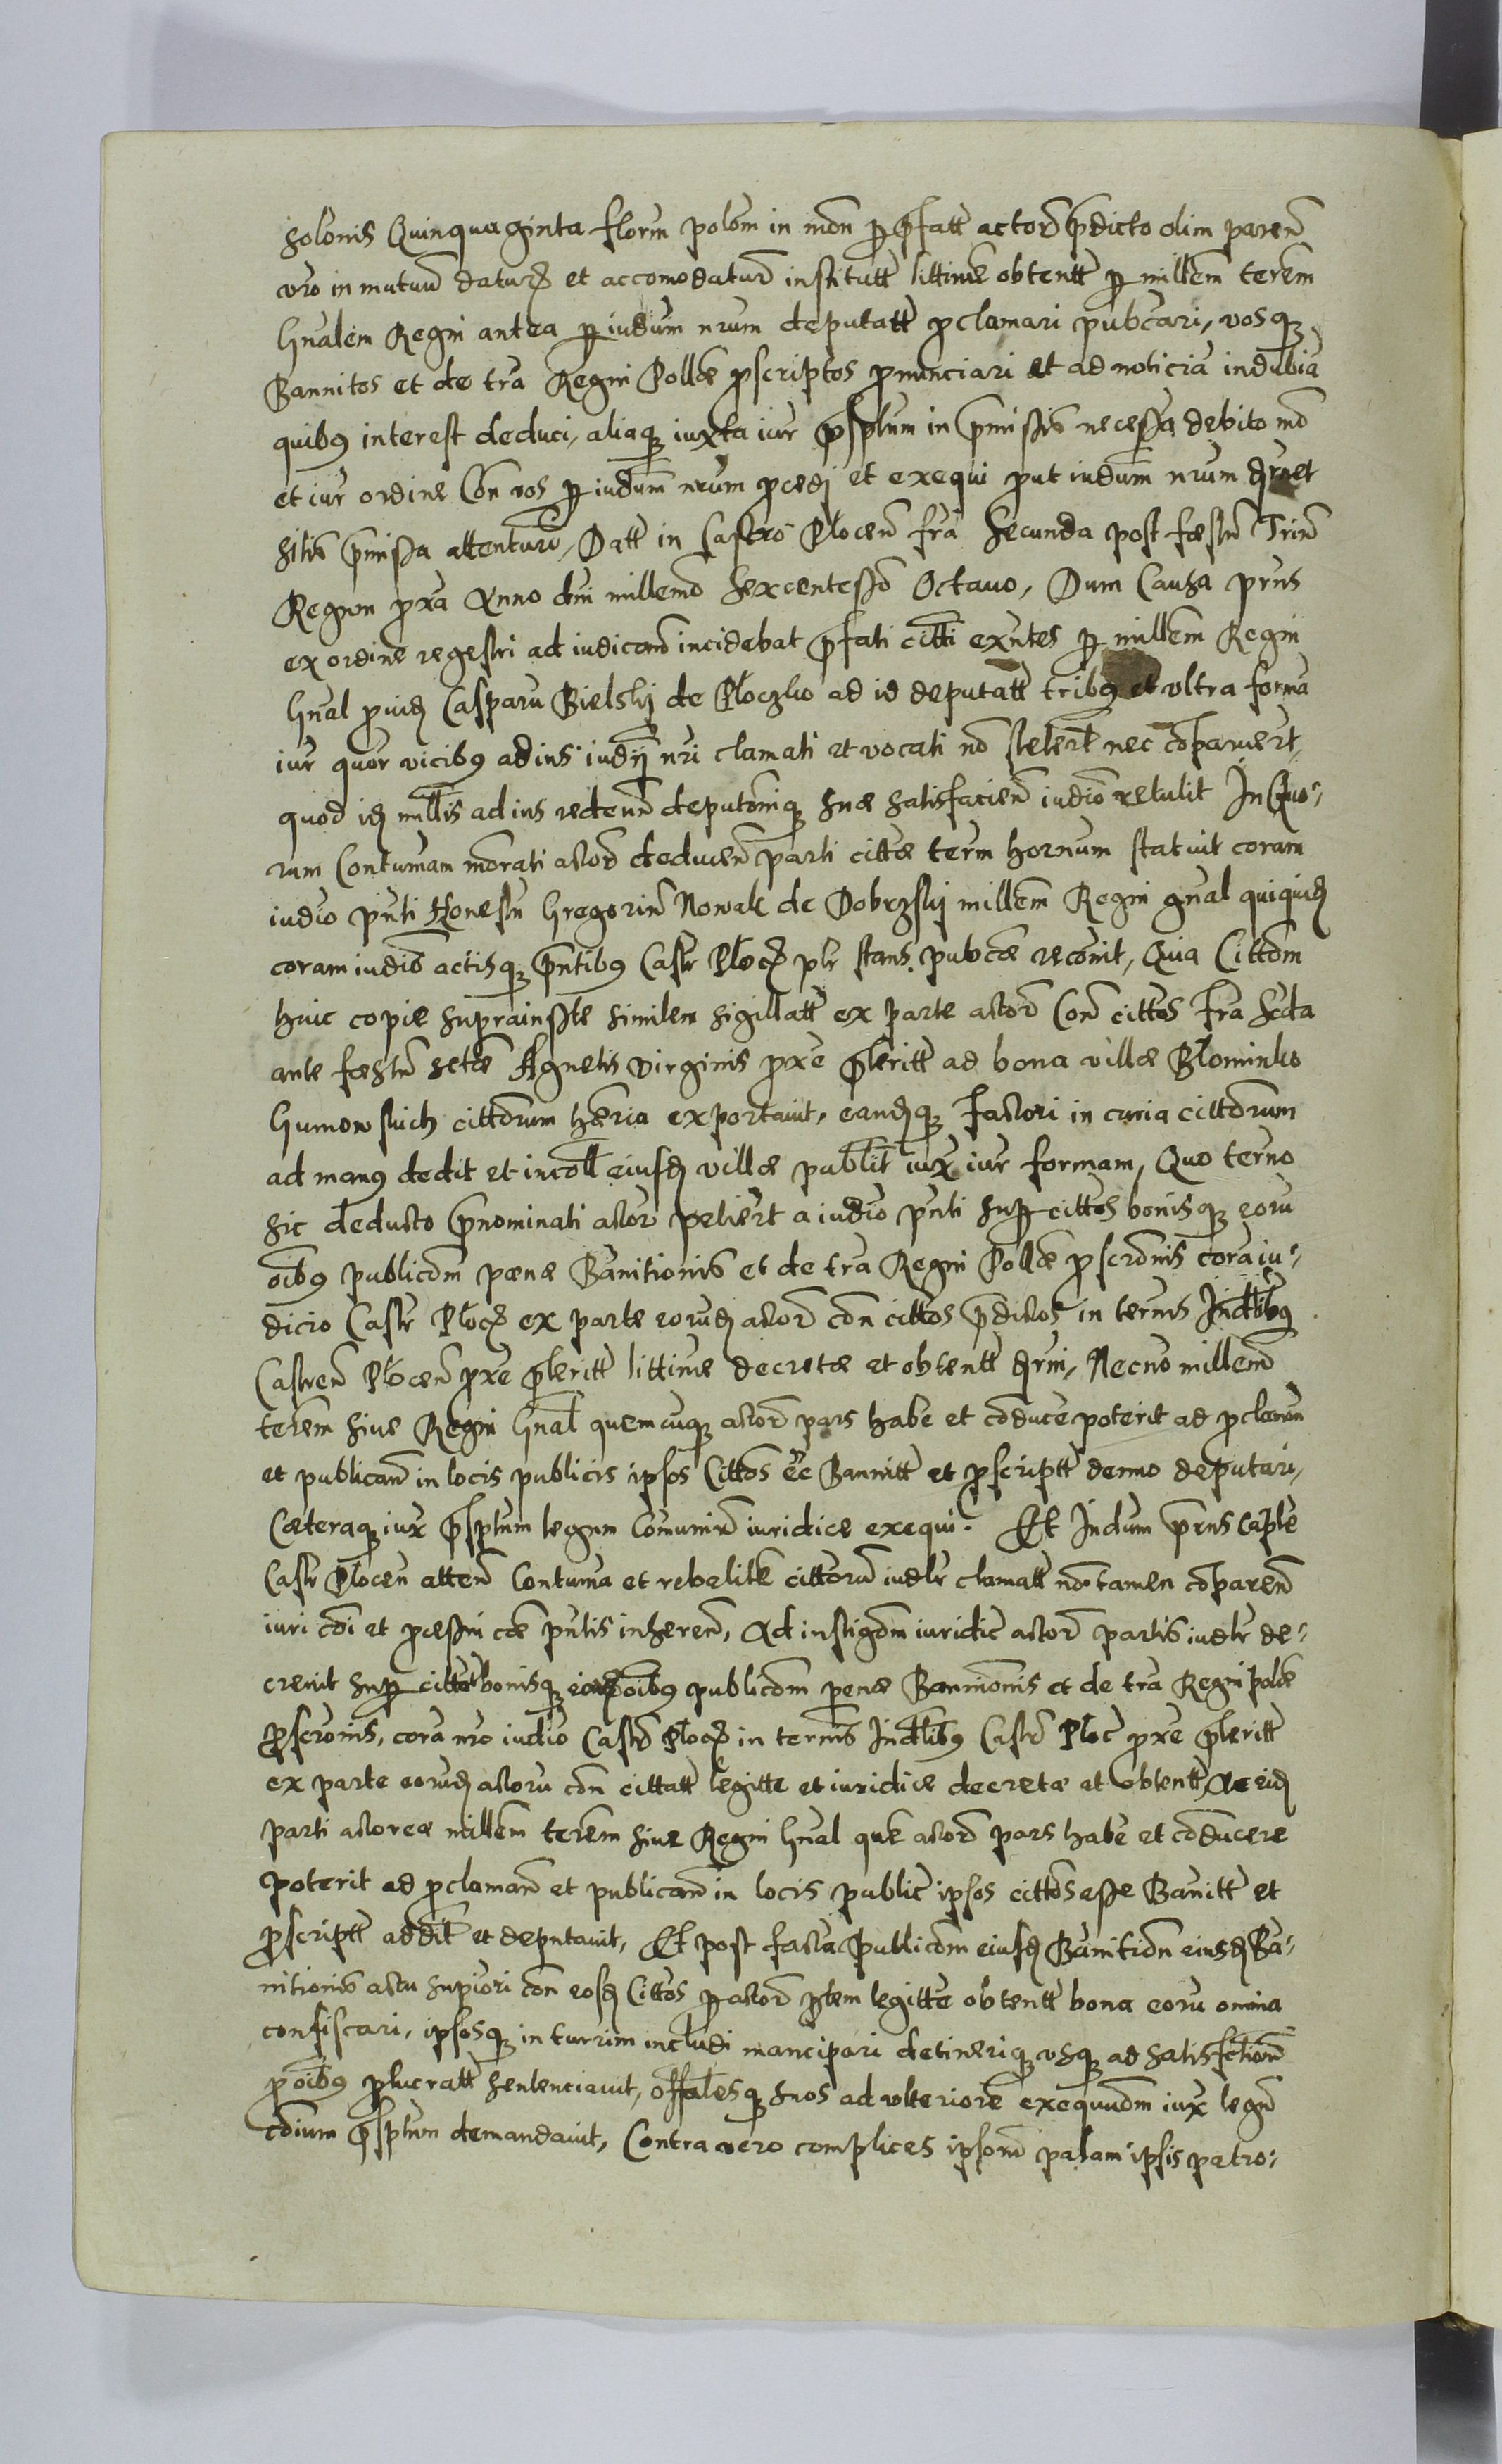 solonis Quinquaginta florm polom in mon p pfatt actorũ pdicto olim parenũ
vro in mutuũ datur et accomodatur instituti littime obtentt p millem terem
Gnalem Regni antea p iudum nrum deputatt pclamari pubcari, vosq
Bannitos et de tra Regni Pollæ pscriptos pnunciari et ad noticiã indubia
quibus interest deduci, aliaq iuxta iur psptum in pmissis necessa debito mo
et iur ordine Con vos p iudum nrum pcedj et exequi put iudum nrum
pmissa attenturi, Datt in Castro Plocen fra Secunda post fæstũ Triũ
Regum pxa Anno dni millemo sexcentesso Octauo, Dum Causa prns
ex ordine regestri ad iudicanũ incidebat pfati citti exntes p millem Regni
Gnal puid Casparũ Bielskj de Ploczko ad id deputatt tribus et vltra formã
iur quor vicibus ad ius iudij nri clamati et vocati no steterũt nec coparuert,
quod id mllis ad ius reddenũ deputonisq suæ satisfacienũ iudio retulit In Quo-
rum Contumam morati actor deducenũ parti cittæ term hornum statuit coram
iudio pnti Honestũ Gregoriũ Nowak de Dobrzskj millem Regni gnal quiquid
coram iudio actisq pntibus Castr Ploc plr stans pubcæ reconit, Quia Cittom
huic copiæ suprainste similem sigillatt ex parte actor Con cittos fra Scta
ante fæstũ sctæ Agnetis virginis pxe pteritt ad bona villæ Blominko
Gumowskich cittorum hæria exportauit, eandq factori in curia cittorum
ad manus dedit et incoll eiusd villæ publit iux iur formam, Quo terno
sic deducto pnominati actor petiert a iudio pnti sup cittos bonisq eorũ
oibus publicom pænæ Banitionis et de tra Regni Pollæ pscronis corã iu-
dicio Castr Ploc ex parte eorud actor con cittos pdictos in termis Indibus
Castren Plocen pxe pteritt littime decretæ et obtentt, Necno millem
terem siue Regni Gnal quemcuq actor pars habe et conducere poterit ad pclamũ
et publicanũ in locis publicis ipsos Cittos ee Bannitt et pscriptt denuo deputari,
Cæteraq iux psptum legum Comuniũ iuridice exequi. Et Iudum prns Capte
Castr Plocen attenũ Contuma et rebelite cittorũ iudlr clamatt no tamen coparenũ
iuri coi et pcessui cæ pntis inherenũ, Ad instigom iuridic actor partis iudlr de-
creuit sup citto bonisq oibus publicom penæ Bannionis et de tra Regni Polæ
pscronis, corã nro iudio Castr Ploc in termis Indibus Castr Ploc pxe pteritt
ex parte eorud actorũ con cittatt legitte et iuridice decretæ et obtentt, Ac eid
parti actoreæ millem terem siue Regni Gnal quẽ actor pars habe et conducere
poterit ad pclamanũ et publicanũ in locis public ipsos cittos esse Banitt et
pscriptt addit et deputauit, Et post factã Publicom eiusd Banition eiusd Ba-
nitionis actu supiori con eosd Cittos p actor ptem legitte obtentt bona eorũ omnia
confiscari, ipsosq in turrim includi mancipari detineriq vsq ad satisfction
p oibus plucratt sentenciauit, offalesq suos ad vlteriorẽ exequundom iux legũ
coium psptum demandauit, Contra vero complices ipsorũ palam ipsis patro-